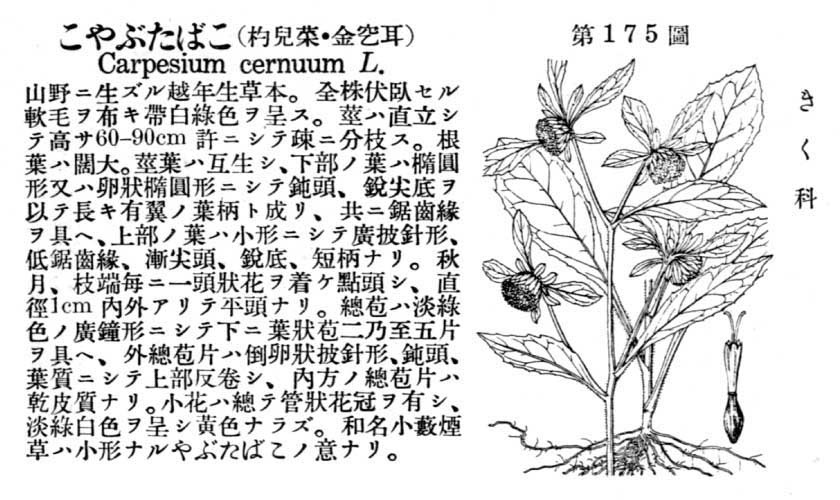 こやぶたばこ(杓兒菜•金空耳)
Carpesium cernuum L.
山野ニ生ズル越年生草本。全株伏臥セル
軟毛ヲ布キ帶白綠色ヲ呈ス。莖ハ直立シ
テ高サ60–90cm許ニシテ疎ニ分枝ス。根
葉ハ闊大。莖葉ハ互生シ、下部ノ葉ハ橢圓
形又ハ卵狀橢圓形ニシテ鈍頭、銳尖底ヲ
以テ長キ有翼ノ葉柄ト成リ、共ニ鋸齒緣
ヲ具ヘ、上部ノ葉ハ小形ニシテ廣披針形、
低鋸齒緣、漸尖頭、銳底、短柄ナリ。秋
月、枝端每ニ一頭狀花ヲ着ケ點頭シ、直
徑1cm內外アリテ平頭ナリ。總苞ハ淡綠
色ノ廣鐘形ニシテ下ニ葉狀苞二乃至五片
ヲ具ヘ、外總苞片ハ倒卵狀披針形、鈍頭、
葉質ニシテ上部反卷シ、內方ノ總苞片ハ
乾皮質ナリ。小花ハ總テ管狀花冠ヲ有シ、
淡綠白色ヲ呈シ黃色ナラズ。和名小藪煙
草ハ小形ナルやぶたばこノ意ナリ。
第175圖
きく科